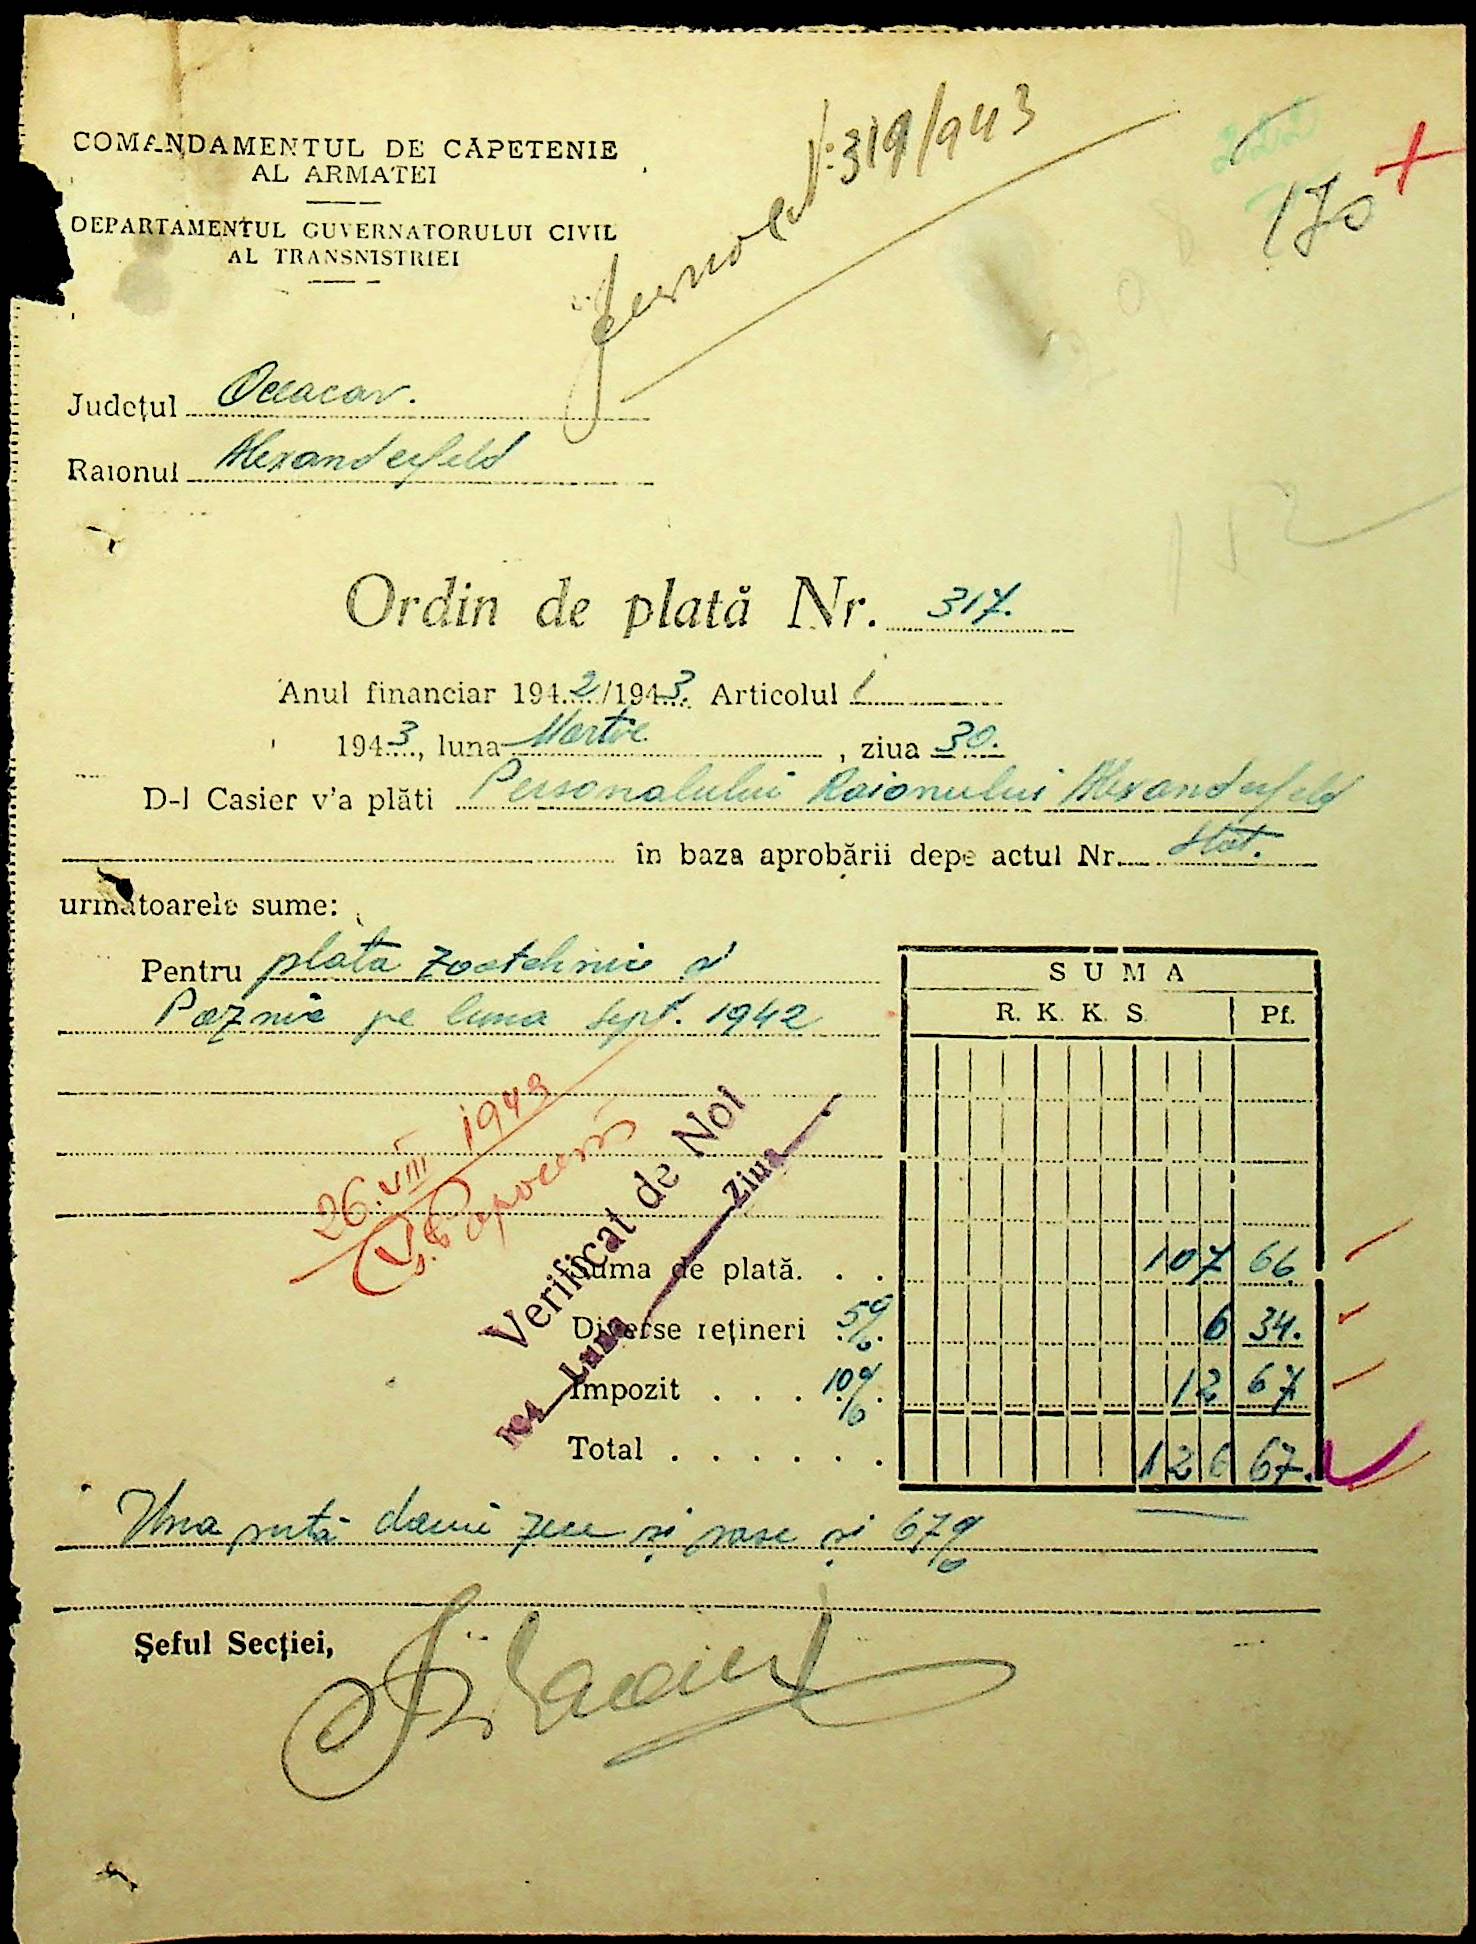 COMANDAMENTUL DE CĂPETENIE
AL ARMATEI
DEPARTAMENTUL GUVERNATORULUI CIVIL
AL TRANSNISTRIEI
Jurnal Nr. 319/943
170
Județul Oceacov.
Raionul Alexanderfeld
152
Ordin de plată Nr. 317.
Anul financiar 1942/1943. Articolul 1
1943, luna Martie, ziua 30.
D-l Casier v'a plăti Personalului Raionului Alexanderfeld
în baza aprobării depe actul Nr. Stat.
următoarele sume:
Pentru plata zootehnic și
Paznic pe luna Sept. 1942
SUMA
R. K. K. S. Pf.
26.VIII 1943
Verificat de Noi
194 Luna Ziua
Suma de plată. . . 107 66
Diverse rețineri 5% 6 34.
Impozit . . . 10% 12 67
Total . . . . . . 126 67.
Una sută douăzeci și șase și 67%
Șeful Secției,